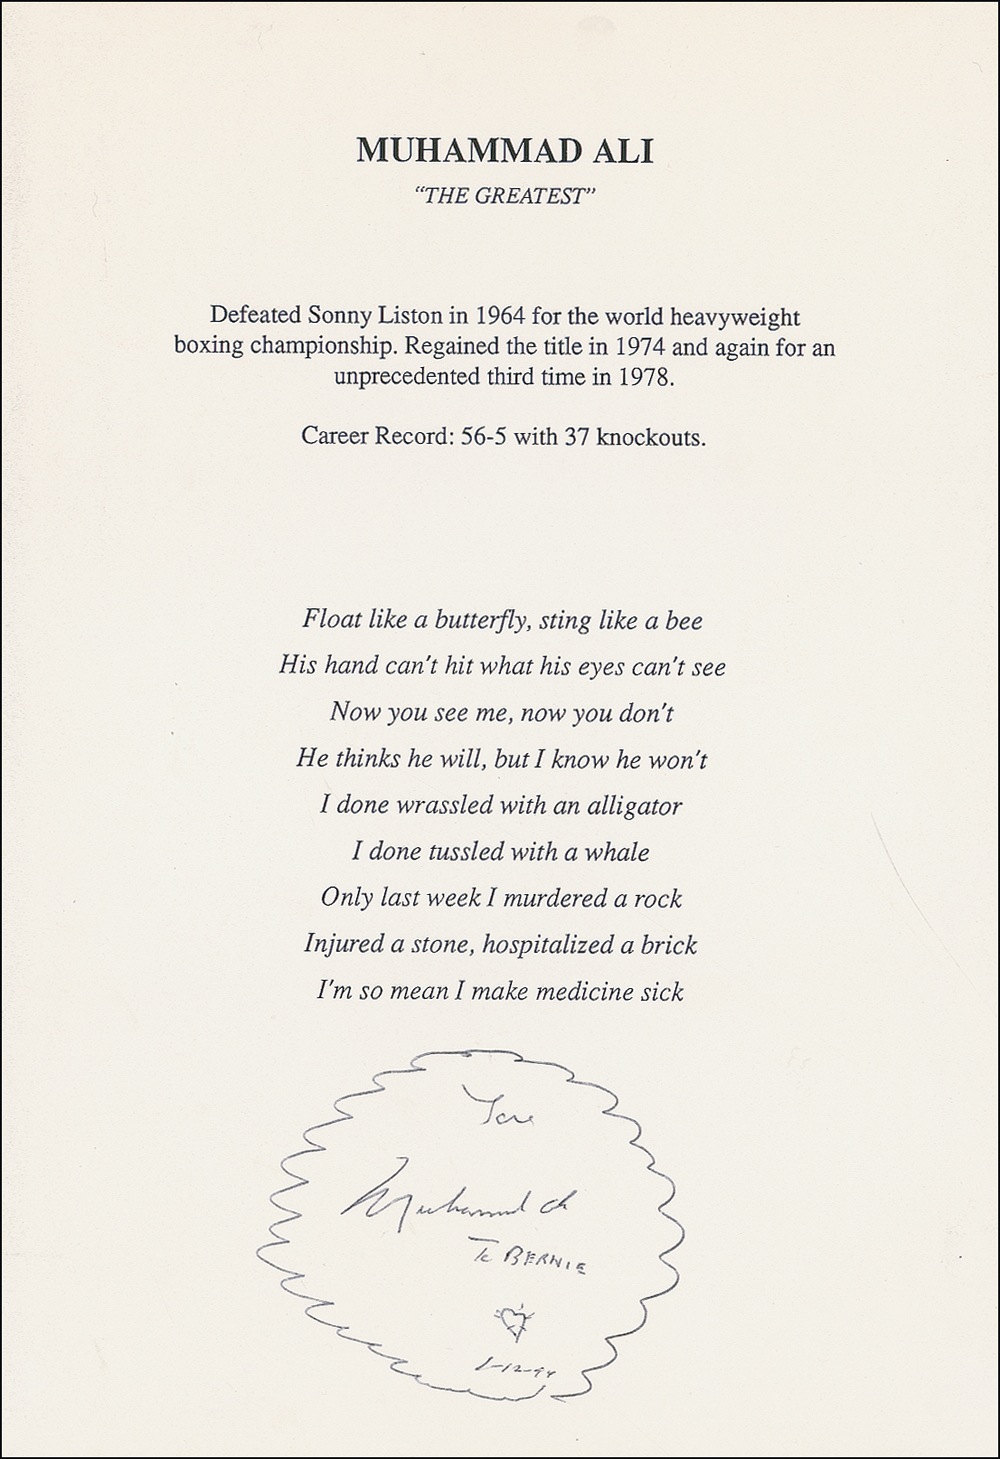 MUHAMMAD ALI
“THE GREATEST”
Defeated Sonny Liston in 1964 for the world heavyweight
boxing championship. Regained the title in 1974 and again for an
unprecedented third time in 1978.
Career Record: 56-5 with 37 knockouts.
Float like a butterfly, sting like a bee
His hand can't hit what his eyes can't see
Now you see me, now you don't
He thinks he will, but I know he won't
I done wrassled with an alligator
I done tussled with a whale
Only last week I murdered a rock
Injured a stone, hospitalized a brick
I'm so mean I make medicine sick
Muhammad Ali
To BERNIE
1-12-94